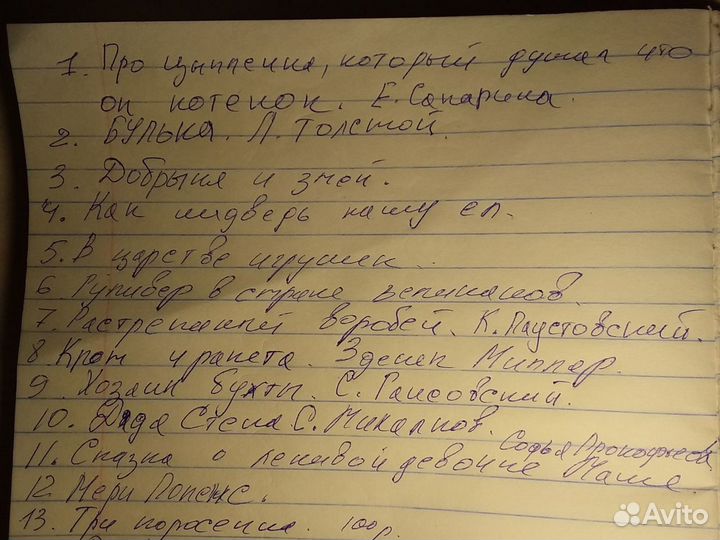 1. Про цыпленка, который думал что
он котенок. Е. Сапарина.
2. БУЛЬКА. Л. Толстой.
3. Добрыня и змей.
4. Как медведь кашу ел.
5. В царстве игрушек.
6. Гуливер в стране великанов.
7. Растрепанный воробей. К. Паустовский.
8. Крот и ракета. Зденек Миллер.
9. Хозяин бухты. С.
10. Дядя Степа С. Михалков.
Софья Прокофьева
11. Сказка о ленивой девочке Маше.
12. Мери Попенс.
13. Три поросенка. 100р.
Avito